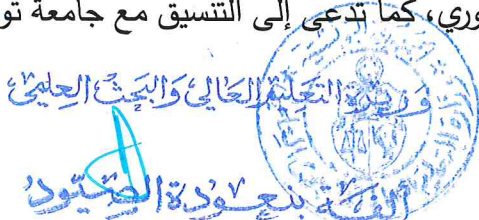 وري، كما تدعى إلى التنسيق مع جامعة تو
وزيرة التعليم العالي والبحث العلمي
ألفة بنعودة الصيود